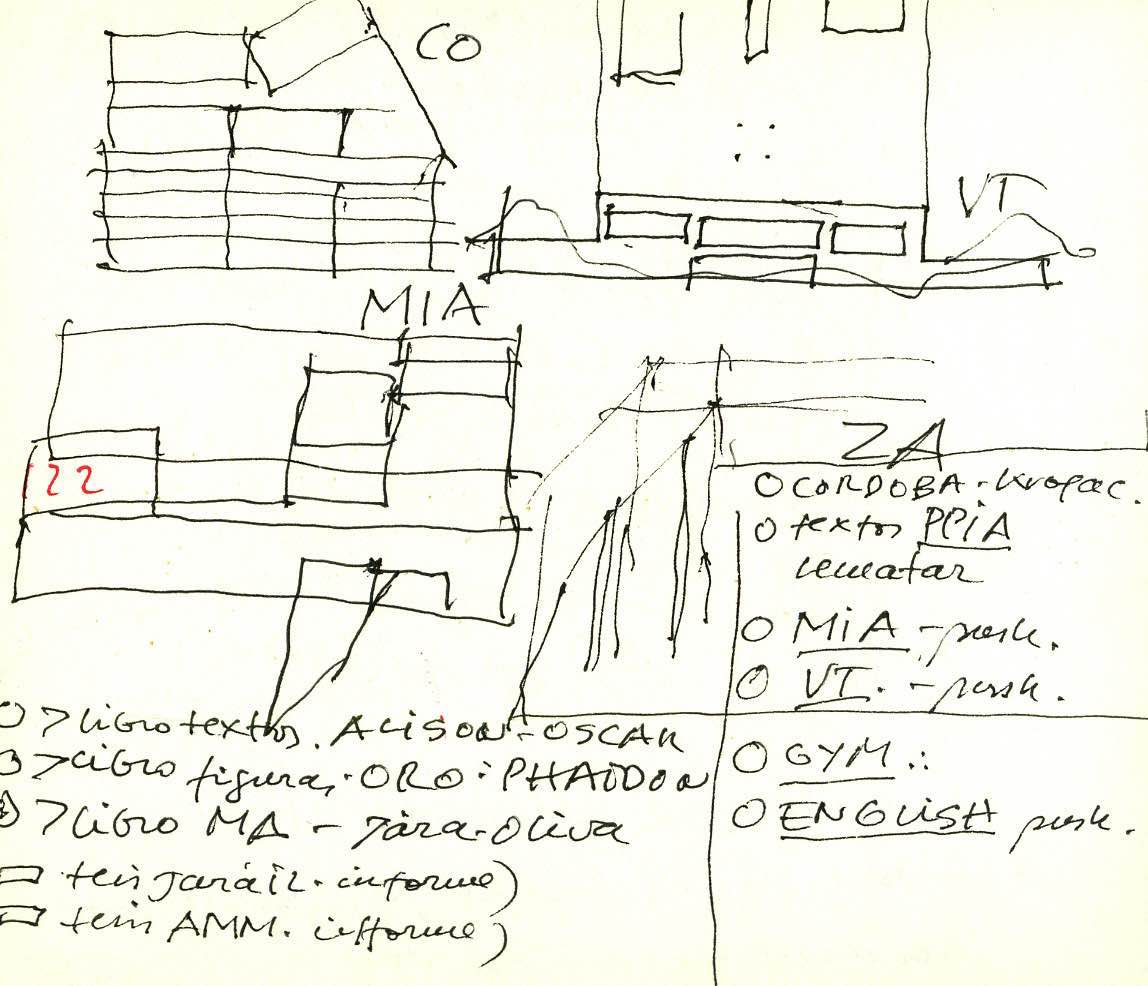 CO
VT
MIA
122
ZA
O CORDOBA - Kropac.
O textos PPIA
rematar
O MiA - push.
O VT. - push.
O > libro textos. ALISON - OSCAR
O > libro figuras. ORO: PHAIDON
> libro MA - Jara-Oliva
tesis Jaráiz. informe)
tesis AMM. informe)
O GYM.:
O ENGLISH push.